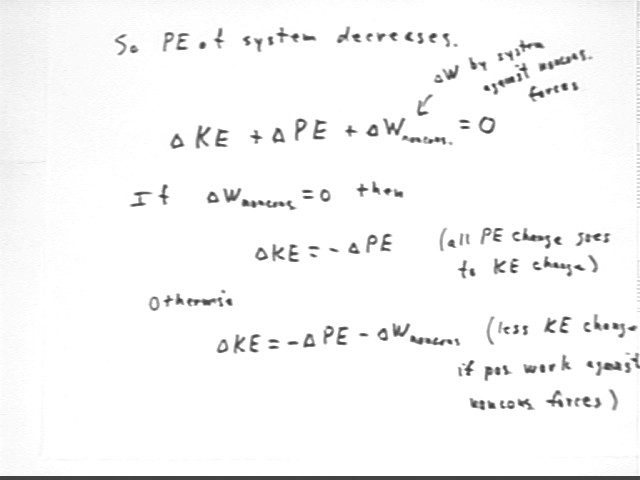 So PE of system decreases.
ΔW by system
against noncons.
forces
Δ KE + Δ PE + ΔW noncons. = 0
If ΔW noncons = 0 then
ΔKE = - ΔPE (all PE change goes
to KE change)
Otherwise
ΔKE = -Δ PE - ΔW noncons (less KE change
if pos work against
noncons forces)